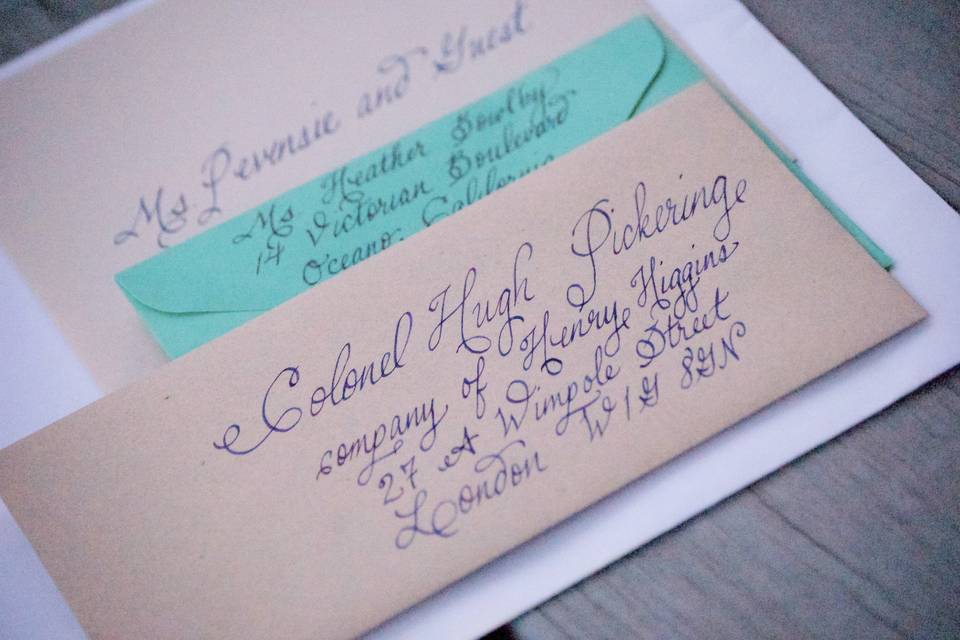 Ms Pevensie and Guest
Ms Heather Bowlby
14 Victorian Boulevard
Oceano, California
Colonel Hugh Pickering
company of Henry Higgins
27 A Wimpole Street
London W1G 8GN